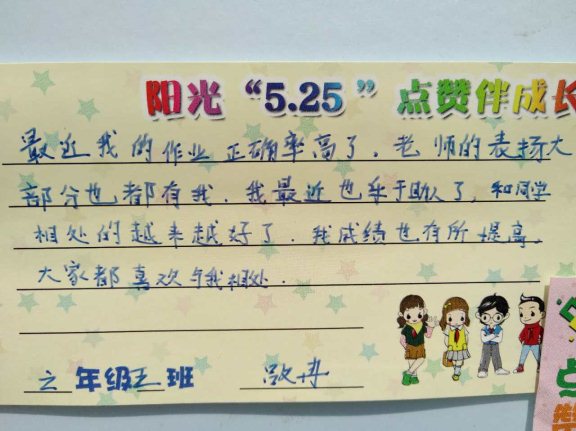 阳光“5.25”点赞伴成长
最近我的作业正确率高了，老师的表扬大
部分也都有我，我最近也乐于助人了，和同学
相处的越来越好了，我成绩也有所提高，
大家都喜欢与我相处．
年级 班
点